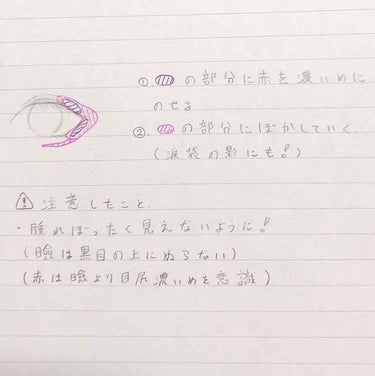 ①. の部分に赤を濃いめに
のせる
②. の部分にぼかしていく.
(涙袋の影にも!)
⚠ 注意したこと.
・腫れぼったく見えないように!
(瞼は黒目の上にぬらない)
(赤は瞼より目尻濃いめを意識)